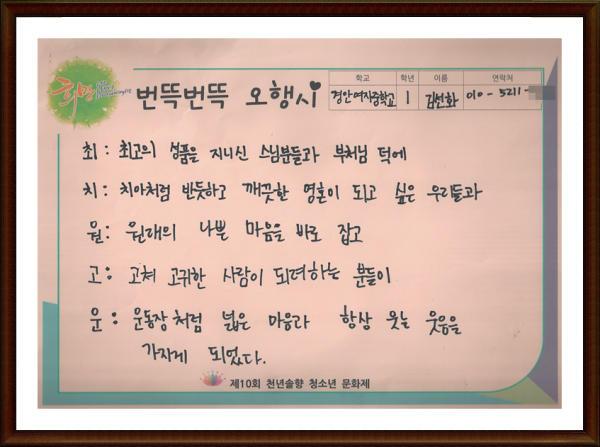 희망
번뜩번뜩 오행시
학교 학년 이름 연락처
경안여자중학교 1 김선화 010-5211-
최: 최고의 성품을 지니신 스님분들과 부처님 덕에
치: 치아처럼 반듯하고 깨끗한 영혼이 되고 싶은 우리들과
원: 원래의 나쁜 마음을 바로 잡고
고: 고쳐 고귀한 사람이 되려하는 분들이
운: 운동장처럼 넓은 마음과 항상 웃는 웃음을
가지게 되었다.
제10회 천년솔향 청소년 문화제